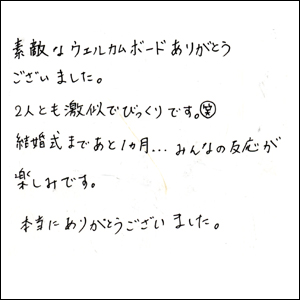 素敵なウェルカムボードありがとう
ございました。
2人とも激似でびっくりです。笑
結婚式まであと1ヵ月...みんなの反応が
楽しみです。
本当にありがとうございました。